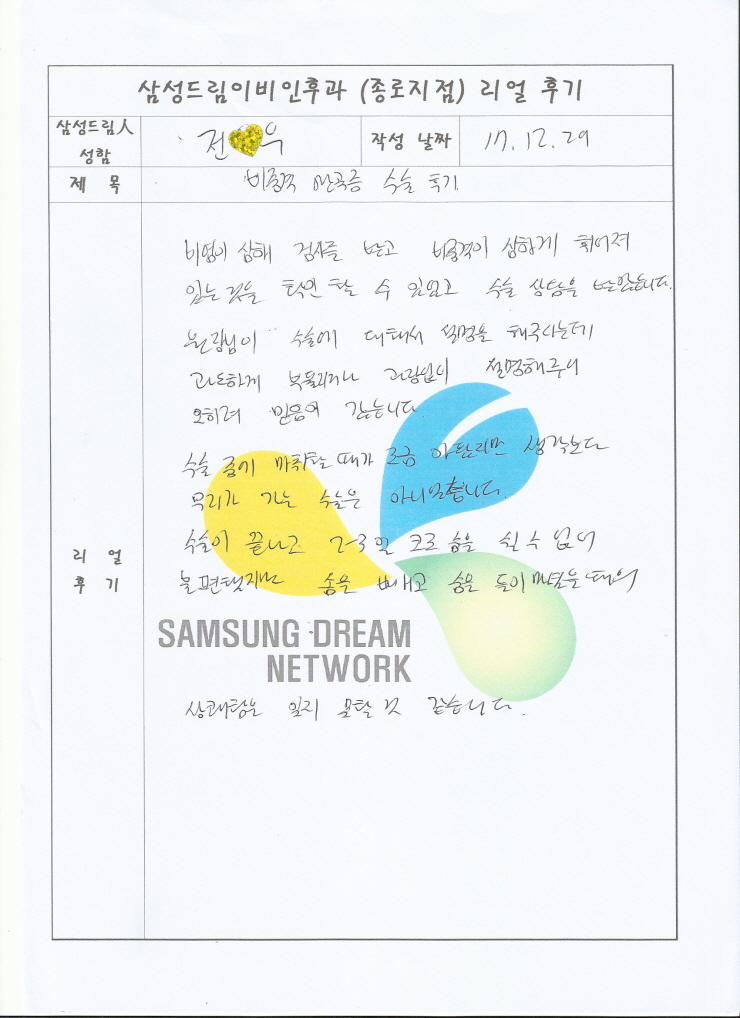 삼성드림이비인후과 (종로지점) 리얼 후기
삼성드림人 성함
전 우
작성 날짜
17. 12. 29
제 목
비중격 만곡증 수술 후기
리 얼 후 기
비염이 심해 검사를 받고 비중격이 심하게 휘어져
있는 것을 확인 할 수 있었고 수술 상담을 받았습니다.
원장님이 수술에 대해서 설명을 해주시는데
과도하게 부풀리거나 과장없이 설명해주셔
오히려 믿음이 갔습니다.
수술 중에 마취할 때가 조금 아팠지만 생각보다
무리가 가는 수술은 아니었습니다.
수술이 끝나고 2-3일 코로 숨을 쉴 수 없어
불편했지만 솜을 빼고 숨을 들이마셨을 때의
SAMSUNG DREAM
NETWORK
상쾌함은 잊지 못할 것 같습니다.